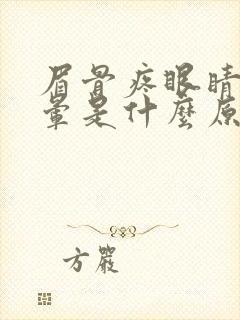 眉骨疼眼睛
暈是什麼原
方嚴